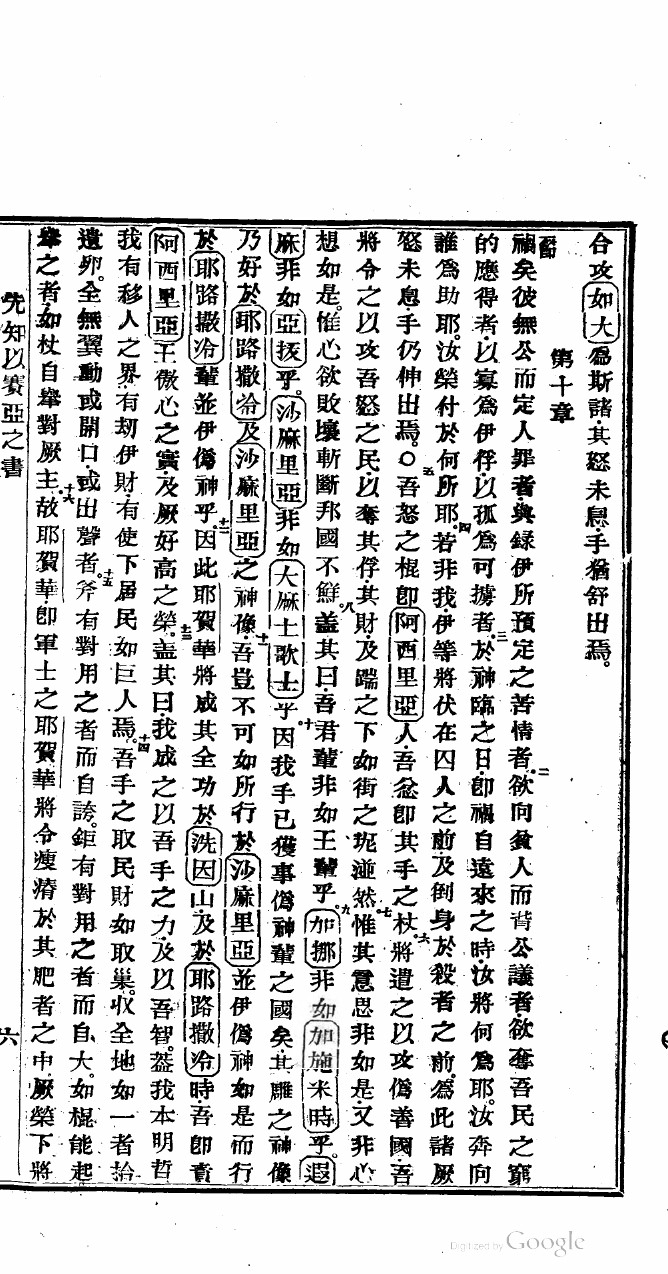 合攻如大爲斯諸其怒未息手猶舒出焉。
第十章
禍矣彼無公而定人罪者與錄伊所預定之苦情者二欲向貧人而背公議者欲奪吾民之窮
的應得者以寡爲伊俘以孤爲可擄者三於神臨之日卽禍自遠來之時汝將何爲耶。汝奔向
誰爲助耶。汝榮付於何所耶。四若非我伊等將伏在囚人之前及倒身於殺者之前。爲此諸厥
怒未息手仍伸出焉。○五吾怒之棍卽阿西里亞人吾忿卽其手之杖六將遣之以攻僞善國吾
將令之以攻吾怒之民以奪其俘其財及踹之下如街之坭湴然七惟其意思非如是又非心
想如是。惟心欲敗壞斬斷邦國不鮮八蓋其曰吾君輩非如王輩乎。九加挪非如加施米時乎。遐
麻非如亞拔乎。沙麻里亞非如大麻士歌士乎十因我手已獲事僞神輩之國矣其雕之神像
乃好於耶路撒冷及沙麻里亞之神像。十一吾豈不可如所行於沙麻里亞並伊僞神如是而行
於耶路撒冷輩並伊僞神乎。十二因此耶賀華將成其全功於洗因山及於耶路撒冷時吾卽責
阿西里亞王傲心之實及厥好高之榮。十三蓋其曰我成之以吾手之力及以吾智。蓋我本明哲
我有移人之界有刼伊財有使下居民如巨人焉。十四吾手之取民財如取巢。收全地如一者拾
遺卵。全無翼動或開口或出聲者。十五斧有對用之者而自誇。鉅有對用之者而自大。如棍能起
舉之者如杖自舉對厥主。十六故耶賀華卽軍士之耶賀華將令瘦瘠於其肥者之中厥榮下將
先知以賽亞之書
六
Digitized by Google